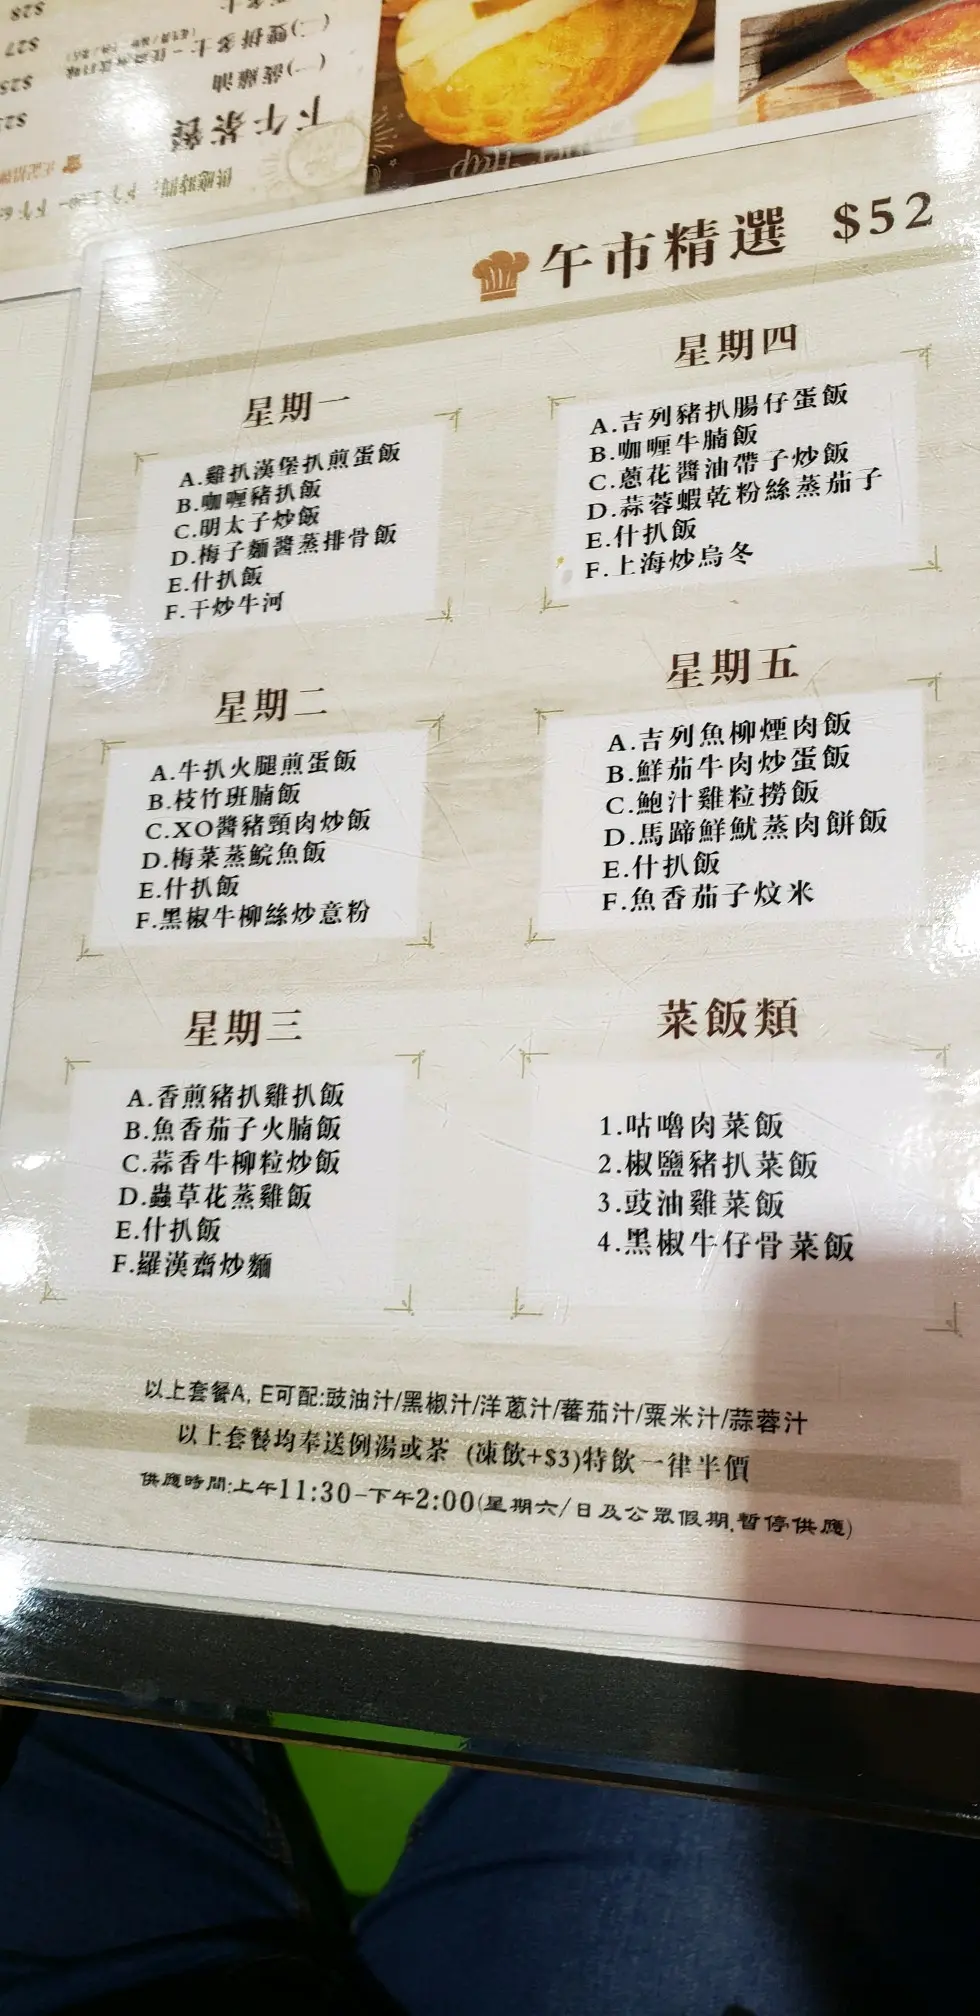 $28
$27
$25
(二)雙拼多士
(一)豉雞油
下午茶餐
供應時間:
午市精選 $52
星期一
A.雞扒漢堡扒煎蛋飯
B.咖喱豬扒飯
C.明太子炒飯
D.梅子麵醬蒸排骨飯
E.什扒飯
F.干炒牛河
星期二
A.牛扒火腿煎蛋飯
B.枝竹班腩飯
C.XO醬豬頸肉炒飯
D.梅菜蒸鯇魚飯
E.什扒飯
F.黑椒牛柳絲炒意粉
星期三
A.香煎豬扒雞扒飯
B.魚香茄子火腩飯
C.蒜香牛柳粒炒飯
D.蟲草花蒸雞飯
E.什扒飯
F.羅漢齋炒麵
星期四
A.吉列豬扒腸仔蛋飯
B.咖喱牛腩飯
C.蔥花醬油帶子炒飯
D.蒜蓉蝦乾粉絲蒸茄子
E.什扒飯
F.上海炒烏冬
星期五
A.吉列魚柳煙肉飯
B.鮮茄牛肉炒蛋飯
C.鮑汁雞粒撈飯
D.馬蹄鮮魷蒸肉餅飯
E.什扒飯
F.魚香茄子炆米
菜飯類
1.咕嚕肉菜飯
2.椒鹽豬扒菜飯
3.豉油雞菜飯
4.黑椒牛仔骨菜飯
以上套餐A, E可配:豉油汁/黑椒汁/洋蔥汁/蕃茄汁/粟米汁/蒜蓉汁
以上套餐均奉送例湯或茶 (凍飲+$3)特飲一律半價
供應時間:上午11:30-下午2:00(星期六/日及公眾假期,暫停供應)